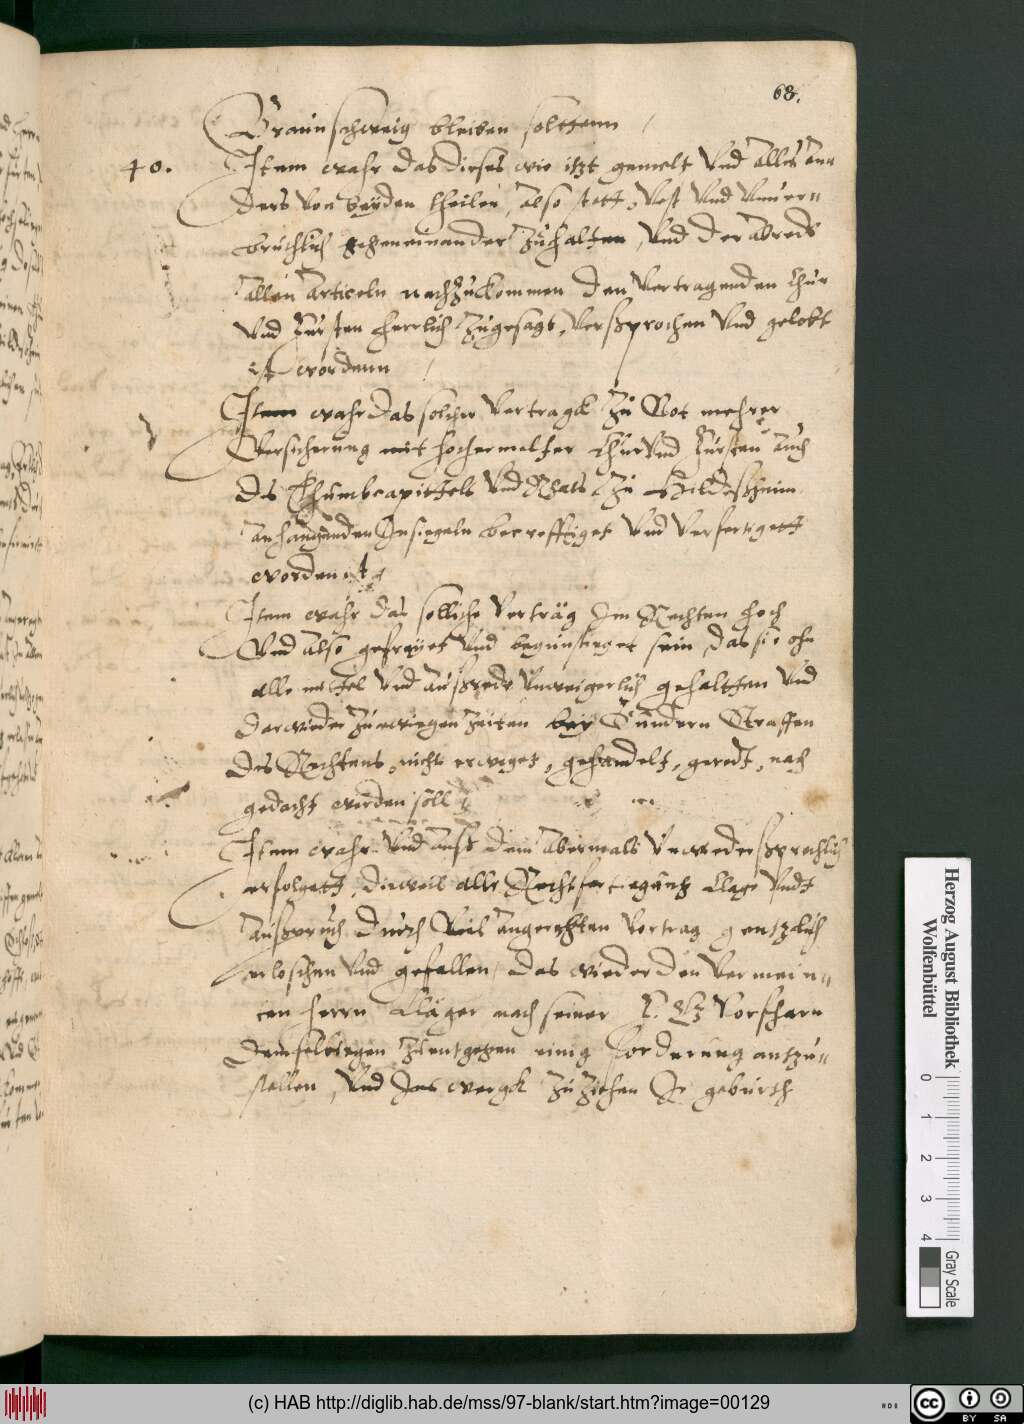 68.
Braunschweig bleiben soltenn
40. Item wahr das dieses wie itzt gemelt Vnd alles an
ders von beyden theilen, also stett, Vest Vnd Vnuer„
bruchlich gegeneinander zuhalten, Vnd der abrede
allen articeln nachzukommen den Vertragenden Chur
Vnd Fursten herrlich zugesagt, versprochen Vnd gelobt
ist wordenn
Item wahr das solcher Vertragk zu Not mehrer
Versicherung mit hochermelter Chur Vnd Fürsten auch
des Thumbcapittels Vnd Rhats zu Hildeßheim
anhangenden Insiegeln becrefftiget Vnd Verfertigett
worden
Item wahr das solliche Vertrag Im Rechten hoch
Vnd also gefreyet Vnd begunstieget sein, das sie ohn
alle mittel Vnd außrede Vnweigerlich gehaltten Vnd
darwieder zu ewiegen zeiten bey Sundern Straffen
des Rechtens, nichts erreget, gehandelt, geredt, noch
gedacht werden soll
Item wahr Vnd auß dem abermals Vnwiedersprechlich
erfolgett, dieweil alle Rechtfertiegung Clage Vndt
außspruch durch Viel angeregkten Vertrag gentzlich
erloschen Vnd gefallen, das wieder den Vermein„
ten herrn Cläger nach seiner Vorfharn
demselbiegen zuentgegen einig forderung antzu„
stellen, Vnd Ins wergk zu ziehen geburth
Herzog August Bibliothek
Wolfenbüttel
0 1 2 3 4
Gray Scale
(c) HAB http://diglib.hab.de/mss/97-blank/start.htm?image=00129
cc BY SA